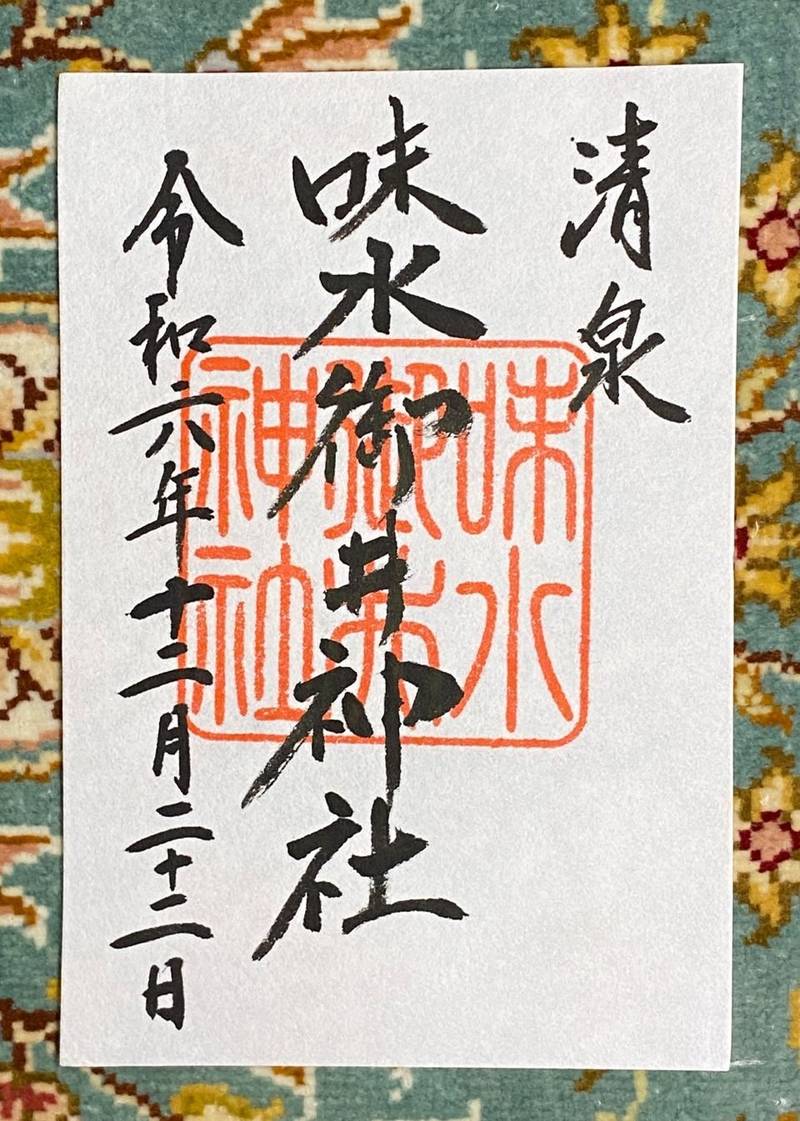 清泉
味水御井神社
令和六年十二月二十二日
味水
御井
神社